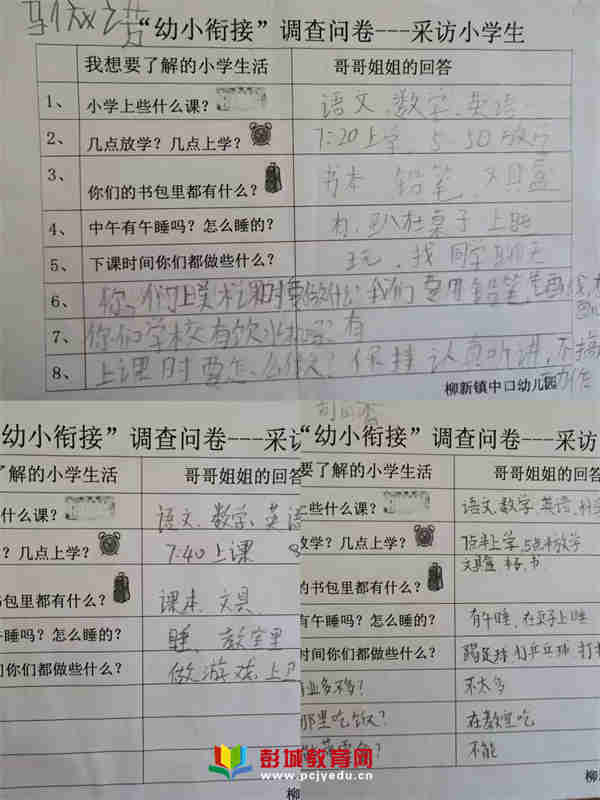 “幼小衔接”调查问卷---采访小学生
我想要了解的小学生活 哥哥姐姐的回答
1、 小学上些什么课? 语文、数学、英语
2、 几点放学?几点上学? 7:20上学、5:50放学
3、 你们的书包里都有什么? 书本 铅笔、文具盒
4、 中午有午睡吗?怎么睡的? 有、趴在桌子上睡
5、 下课时间你们都做些什么? 玩、找同学聊天
6、 你们上美术课时要做什么 我们要用铅笔
7、 你们学校有饮水机吗 有
8、 上课时要怎么做? 保持认真听讲,不搞
柳新镇中口幼儿园
幼小衔接”调查问卷---采访
了解的小学生活 哥哥姐姐的回答
什么课? 语文、数学、英语
?几点上学? 7:40上课
书包里都有什么? 课本、文具
午睡吗?怎么睡的? 睡、教室里
间你们都做些什么? 做游戏、上
柳
幼小衔接”调查问卷---采访
要了解的小学生活 哥哥姐姐的回
些什么课? 语文、数学、英语、科学
放学?几点上学? 7点半上学、5点半放学
的书包里都有什么? 文具盒 本、书
有午睡吗?怎么睡的? 有午睡、在桌子上睡
时间你们都做些什么? 踢足球、打乒乓球、打
业多不多? 不太多
那里吃饭? 在教室吃
不能
柳
彭城教育网
www.pcjyedu.cn